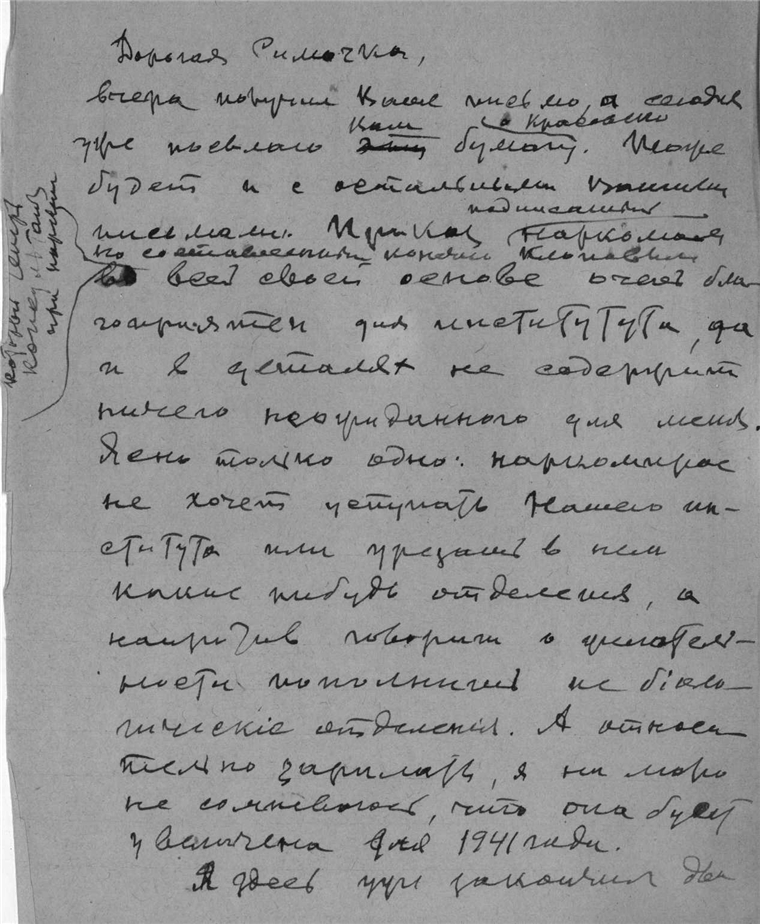 Дорогая Римочка,
вчера получил Ваше письмо, а сегодня
уже посылаю Вам бумагу. Тоже
будет и с остальными Вашими
письмами. Приказ подписанный Наркомом
но составленный
во всей своей основе очень бла-
гоприятен для института, да
и в деталях не содержит
ничего неожиданного для меня.
Ясно только одно: наркомпрос
не хочет уступать Нашего ин-
ститута или урезать в нем
какие нибудь отделения, а
напротив говорит о желатель-
ности пополнить не біоло-
гическіе отделенія. А относи-
тельно зарплаты, я ни мало
не сомневаюсь, что она будет
увеличена для 1941 года.
Я здесь уже закончил два
который теперь
консультант
при наркоме